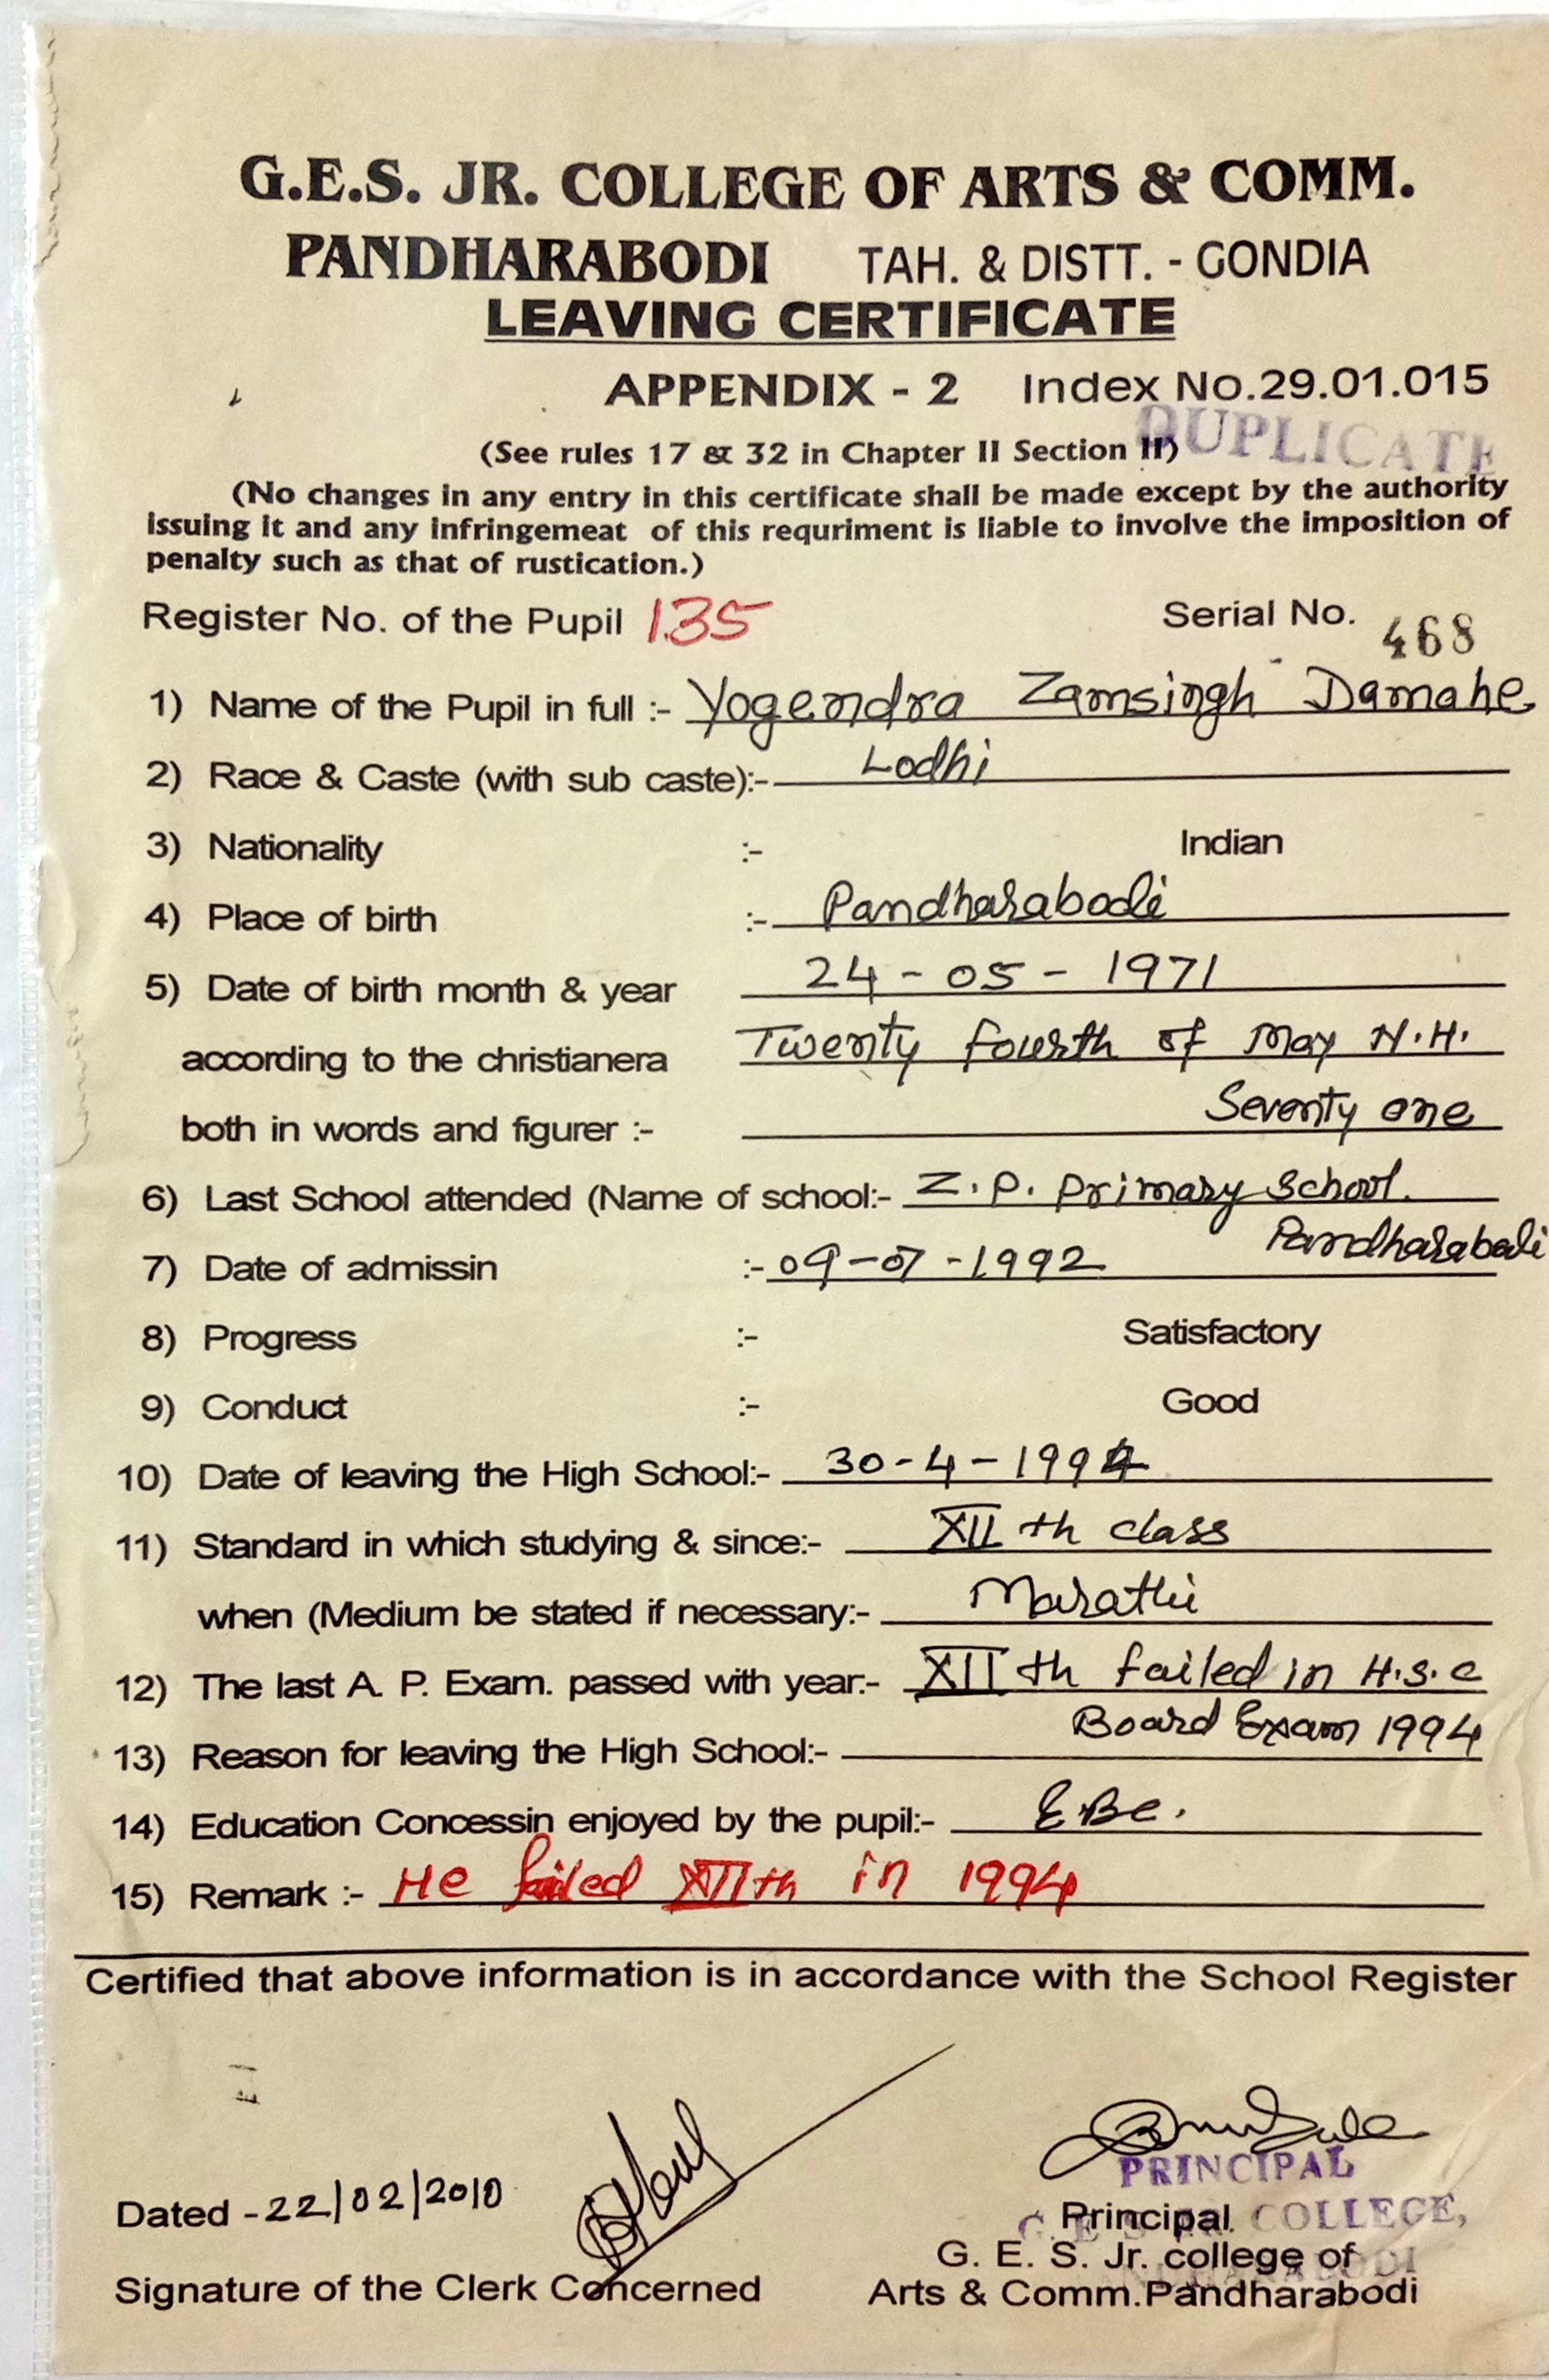 G.E.S. JR. COLLEGE OF ARTS & COMM.
PANDHARABODI TAH. & DISTT. - GONDIA
LEAVING CERTIFICATE
APPENDIX - 2 Index No.29.01.015
DUPLICATE
(See rules 17 & 32 in Chapter II Section II)
(No changes in any entry in this certificate shall be made except by the authority
issuing it and any infringemeat of this requriment is liable to involve the imposition of
penalty such as that of rustication.)
Register No. of the Pupil 135 Serial No. 468
1) Name of the Pupil in full :- Yogendra Zamsingh Damahe
2) Race & Caste (with sub caste):- Lodhi
3) Nationality :- Indian
4) Place of birth :- Pandharabodi
5) Date of birth month & year 24 - 05 - 1971
according to the christianera Twenty fourth of May N.H.
both in words and figurer :- Seventy one
6) Last School attended (Name of school:- Z.P. Primary School.
Pandharabodi
7) Date of admissin :- 09-07-1992
8) Progress :- Satisfactory
9) Conduct :- Good
10) Date of leaving the High School:- 30-4-1994
11) Standard in which studying & since:- XII th class
when (Medium be stated if necessary:- Marathi
12) The last A. P. Exam. passed with year:- XII th failed in H.S.C
Board Exam 1994
13) Reason for leaving the High School:-
14) Education Concessin enjoyed by the pupil:- E.B.C.
15) Remark :- He failed XIIth in 1994
Certified that above information is in accordance with the School Register
PRINCIPAL
Dated - 22/02/2010
Principal
G. E. S. JR. COLLEGE,
G. E. S. Jr. college of
Signature of the Clerk Concerned
Arts & Comm.Pandharabodi